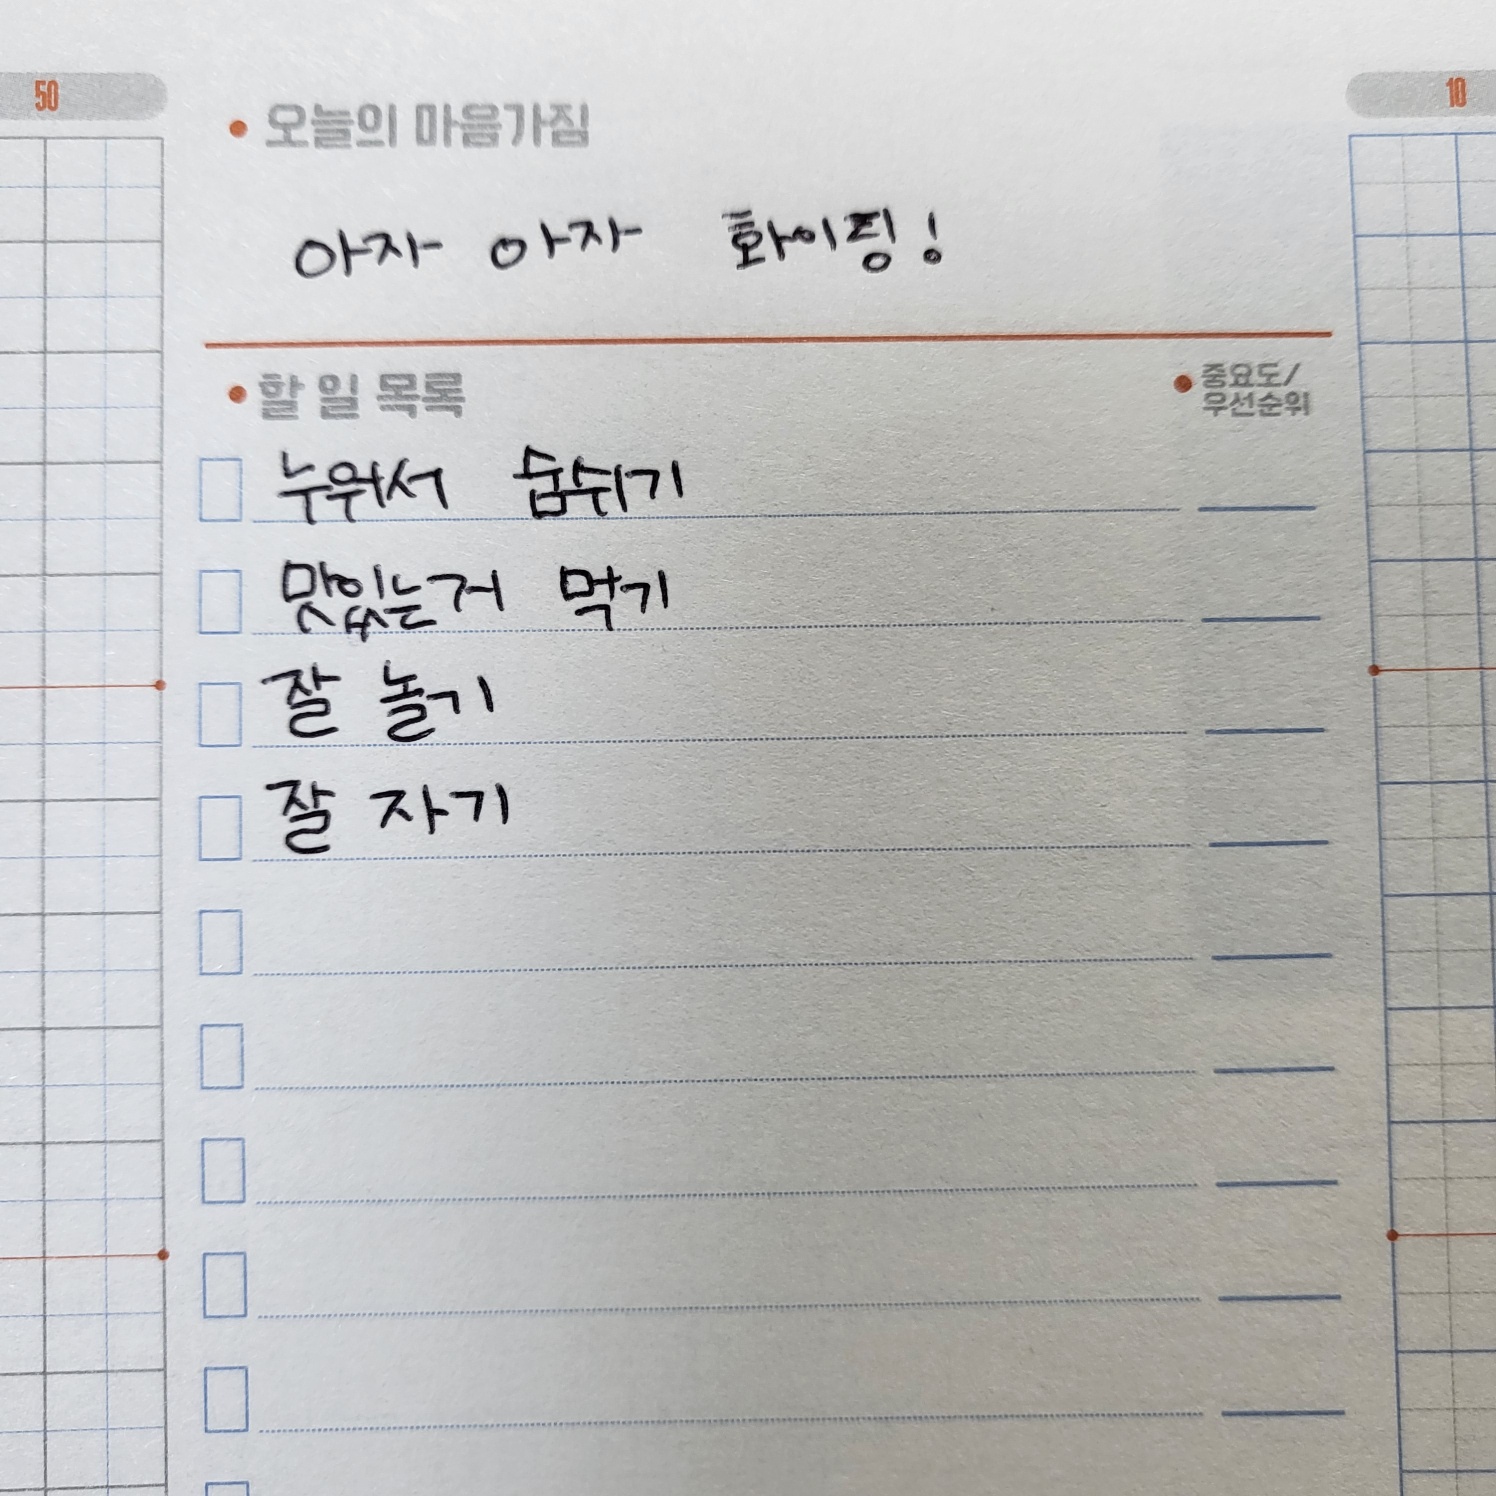 50
10
오늘의 마음가짐
아자 아자 화이팅!
할 일 목록
중요도/
우선순위
누워서 숨쉬기
맛있는거 먹기
잘 놀기
잘 자기